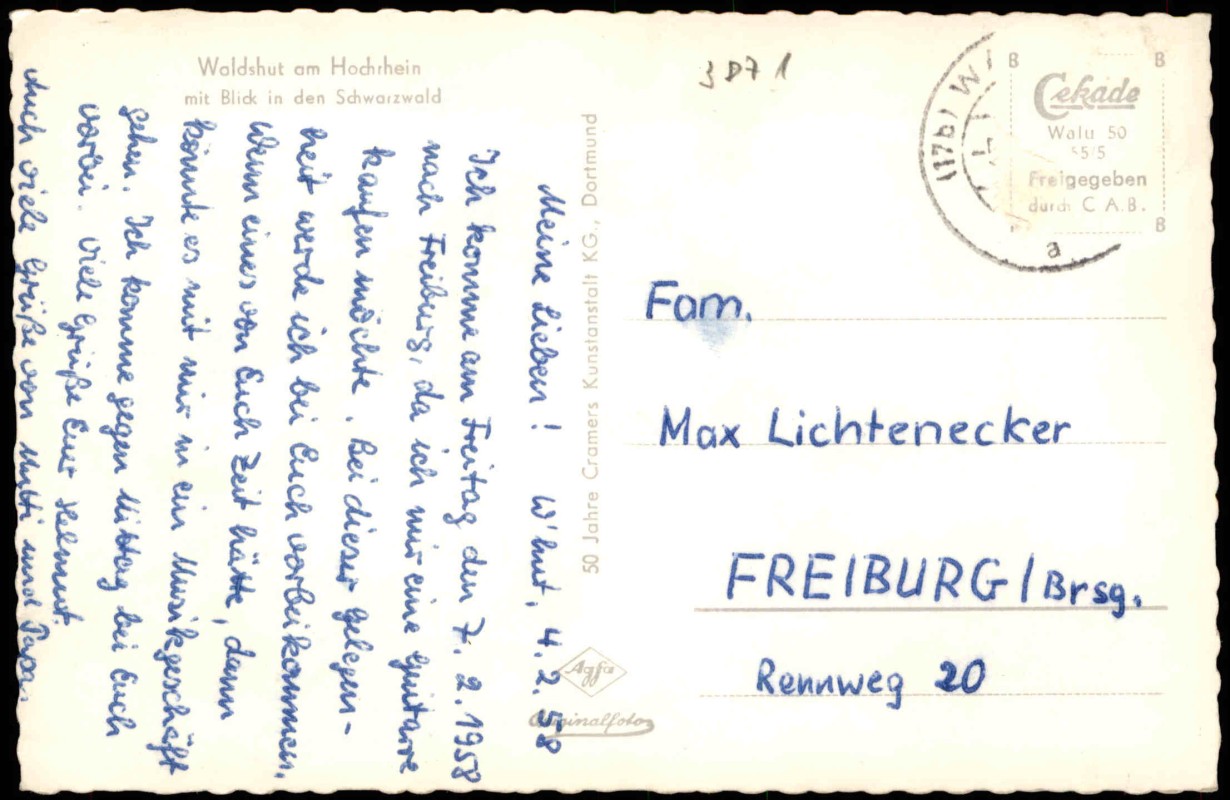 Waldshut am Hochrhein
mit Blick in den Schwarzwald
Meine Lieben! W'hut, 4. 2. 58
Ich komme am Freitag den 7. 2. 1958
nach Freiburg, da ich mir eine Guitarre
kaufen möchte. Bei dieser Gelegen-
heit werde ich bei Euch vorbeikommen.
Wenn eines von Euch Zeit hätte, dann
könnte es mit mir in ein Musikgeschäft
gehen. Ich komme gegen Mittag bei Euch
vorbei. Viele Grüße Euer Helmut.
Auch viele Grüße von Mutti und Papa.
50 Jahre Cramers Kunstanstalt KG., Dortmund
Agfa
Originalfoto
3 D7 1
(17b) W
a
B B
Cekade
Walu 50
55/5
Freigegeben
durch C.A.B.
B
Fam.
Max Lichtenecker
FREIBURG / Brsg.
Rennweg 20